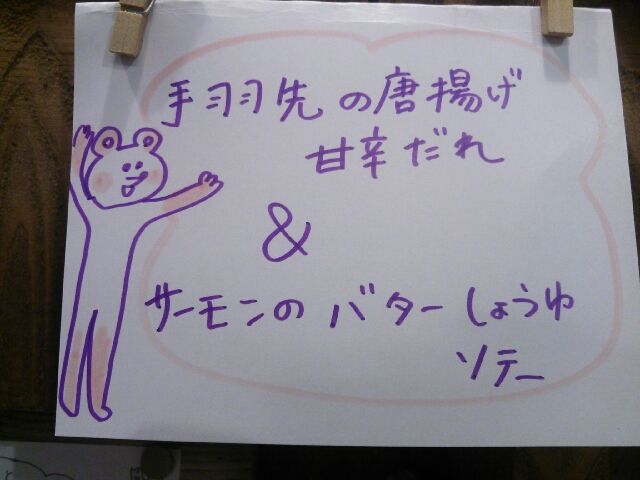 手羽先の唐揚げ
甘辛だれ
&
サーモンの バターしょうゆ
ソテー